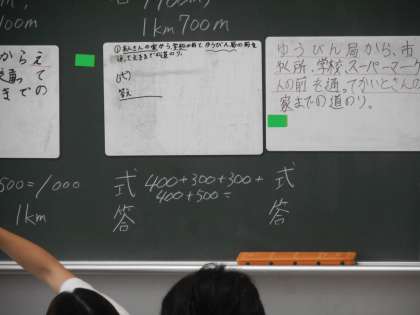 100m
1km700m
からえ
って
までの
①あんさんの家から、学校の前とゆうびん局の前を
通って
(式)
答
ゆうびん局から、市
役所、学校、スーパーマーケ
の前を通って、かいとさんの
家までの道のり。
500=1000
1km
式 400+300+300+
400+500=
答
式
答